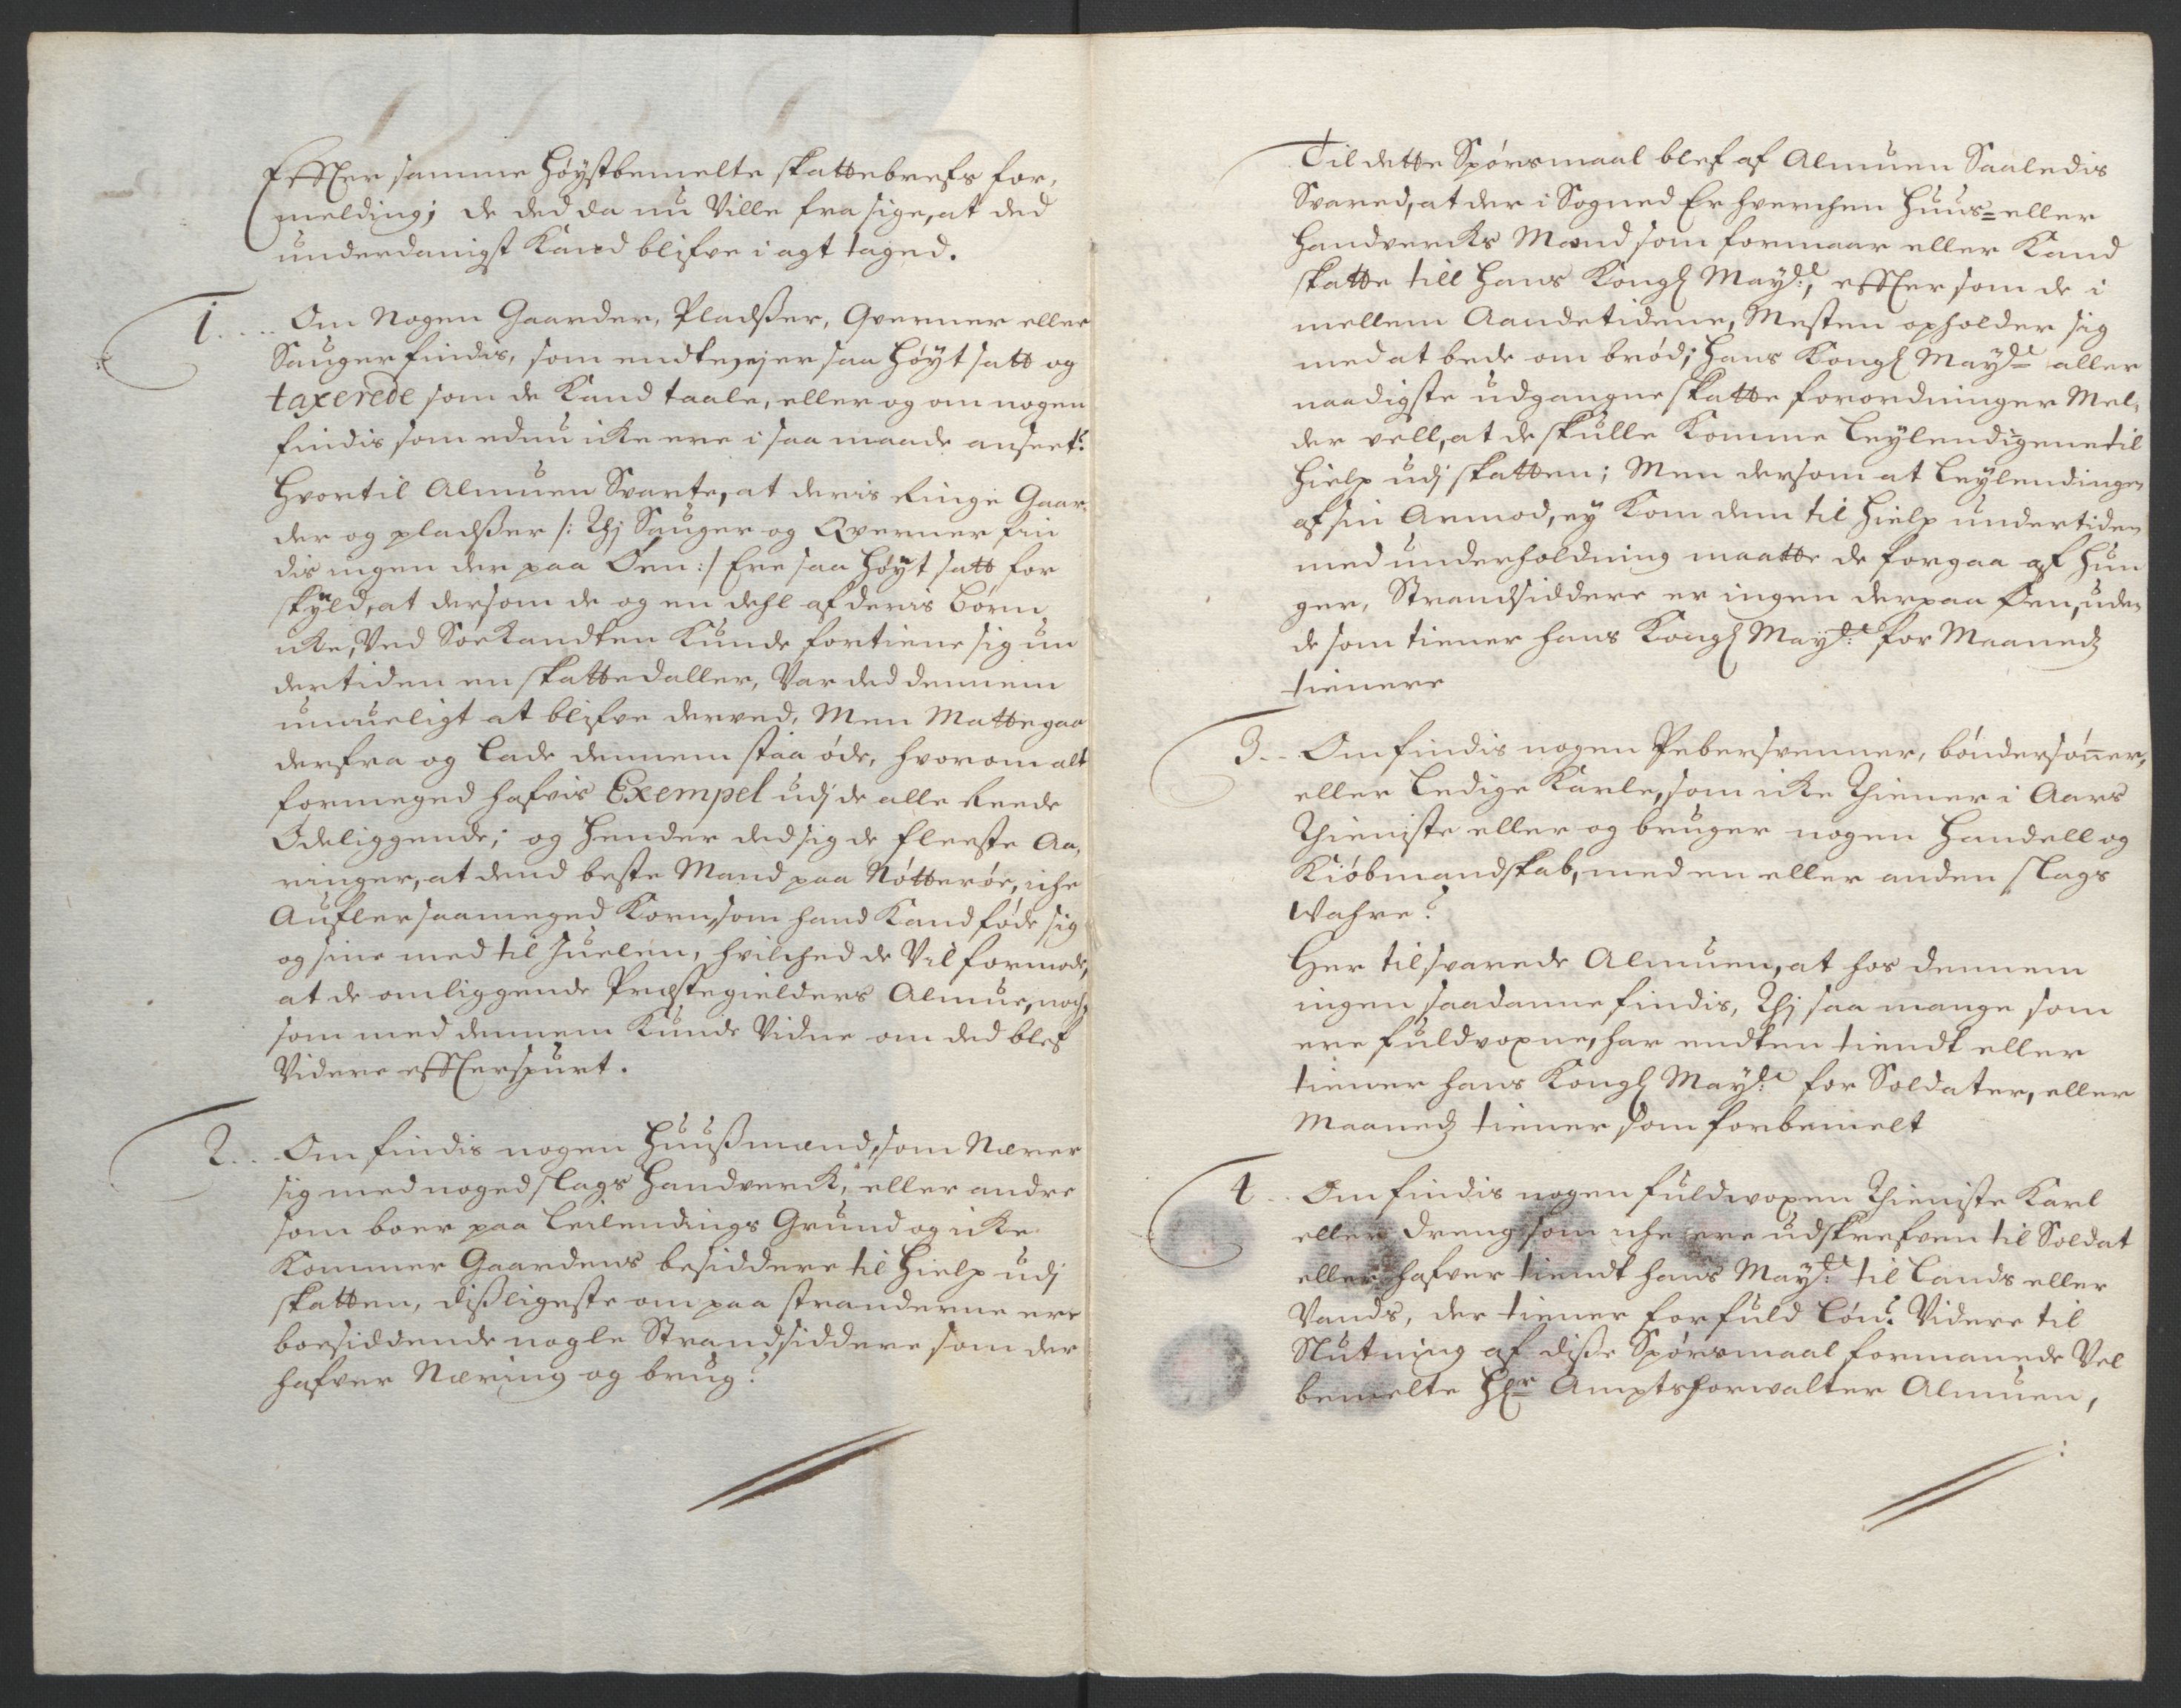 Effter samme Høystbemelte skattebrefs for,
melding; de ded da nu Ville fra sige, at ded
underdanigst Kand blifve i agt taged.
1. Om Nogen Gaarder, Pladsser, Qverner eller
Sauger findis, som endten ejer saa Høyt satt og
taxerede som de Kand taale, eller og om nogen
findis som ednu icke ere i saa maade anseet?
Hvortil Almuen Svarte, at deris Ringe Gaar,
der og pladsser /: Thj Sauger og Qverner fin
dis ingen der paa Øen :/ Ere saa Høyt satt for
skyld, at dersom de og en dehl af deris Børn
icke, Ved Søekandten Kunde fortiene sig un
dertiden en skattedaller, Var ded dennem
umueligt at blifve derved, Men Matte gaa
derfra og Lade dennem staa øde, hvorom alt
formeged hafvis Exempel udj de alle Reede
Ødeliggende; og Hender ded sig de fleeste Aa,
ringer, at dend beste Mand paa Nøtterøe, iche
Aufler saameged Korn, som hand Kand føde sig
og sine med til Juelen, hvilched de Vel formode,
at de omliggende Præstegielders Almue, noch,
som med dennem Kunde Vidne om ded blef
Videre effterspurt.
2. Om findis nogen Huussmænd, som Nærer
sig med noged slags Handverck, eller andre
som boer paa Leilendings Grund og icke
Kommer Gaardens besiddere til Hielp udj
skatten, dissligeste om paa stranderne ere
boesiddende nogle Strandsiddere som der
hafver Næring og brug?
Til dette Spørsmaal blef af Almuen Saaledis
Svared, at der i Sogned Er hverchen Huus= eller
Handvercks Mænd som formaar eller Kand
skatte till Hans Kongl Mayst:, effter som de i
mellem Aandetidene, Mesten opholder sig
med at bede om brød; Hans Kongl Mayst: aller
naadigste udgangne skatte forordninger Mel,
der vell, at de skulle Komme Leylendingene til
Hielp udj skatten; Men dersom at Leylendingen
af sin Armod, ey Kom dem til Hielp undertiden
med underholdning maatte de forgaa af Hun
ger, Strandsiddere er ingen der paa Øen, uden
de som tiener hans Kongl Mayst: for Maaneds
tienere
3. Om findis nogen Pebersvenner, bøndersønner,
eller Ledige Karle, som icke Thiener i Aars
Thieniste eller og bruger nogen Handell og
Kiøbmandskab, med en eller anden slags
Wahre?
Her til svarede Almuen, at hos dennem
ingen saadanne findis, Thj saa mange som
ere fuldvoxne, har endten tiendt eller
tiener hans Kongl Mayst: for Soldater, eller
Maaneds tiener som forbemelt
4. Om findis nogen fuldvoxen Thieniste Karl
eller dreng som iche ere udskrefven til Soldat
eller hafver tiendt hans Mayst: til Lands eller
Vands, der tiener for fuld Løn? Videre til
Slutning af disse Spørsmaal formanede Vel
bemelte Hr Amptsforvalter Almuen,